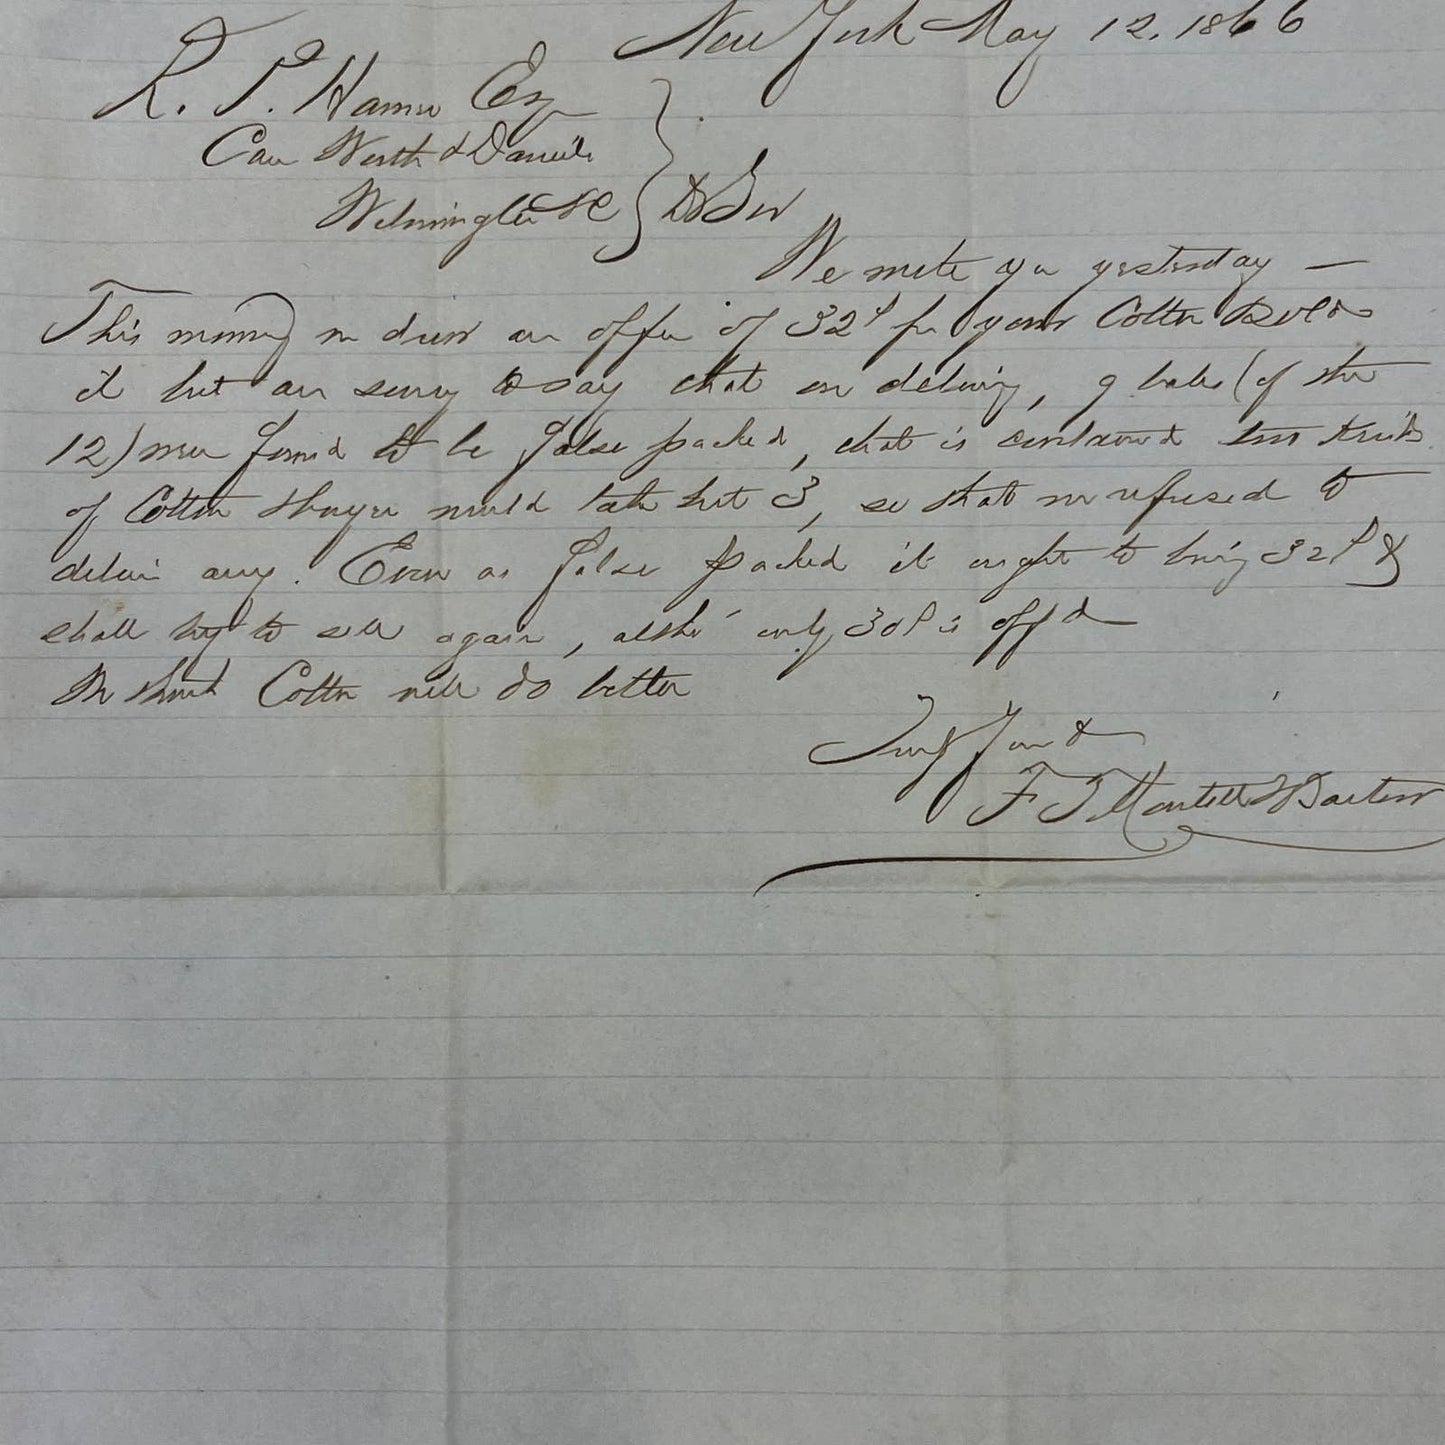 New York May 12. 1866
R. P. Esq
Care Worth & Daniels
Wilmington NC } Dr Sir
We wrote you yesterday —
This morning we drew an offer of 32 for your Cotton & sold
it but are sorry to say that on delivery, 9 bales (of the
12) were found to be false packed, that is contained two kinds
of Cotton & buyer would take but 3, so that we refused to
deliver any. Even as false packed it ought to bring 32 &
shall try to sell again, altho' only 30 is off'd
We think Cotton will do better
Truly Yours
F